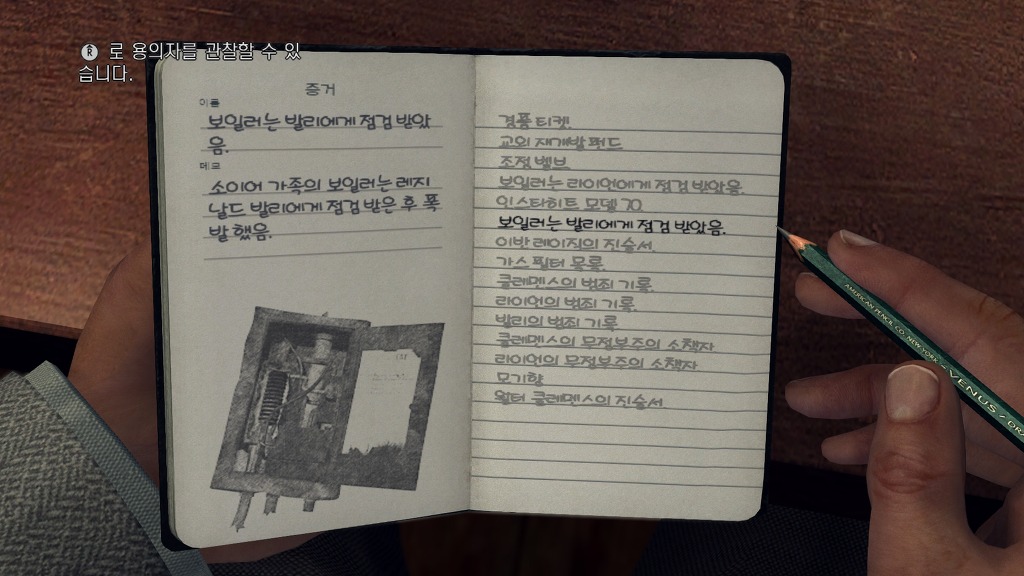 R 로 용의자를 관찰할 수 있
습니다.
증거
이름
보일러는 발리에게 점검 받았
음.
메모
소이어 가족의 보일러는 레지
날드 발리에게 점검 받은 후 폭
발 했음.
경품 티켓.
교외 재개발 펀드
조정 밸브
보일러는 라이언에게 점검 받았음.
인스타히트 모델 70.
보일러는 발리에게 점검 받았음.
이반 레이직의 진술서.
가스 필터 목록.
클레멘스의 범죄 기록.
라이언의 범죄 기록.
발리의 범죄 기록
클레멘스의 무정부주의 소책자
라이언의 무정부주의 소책자
모기향
월터 클레멘스의 진술서.
AMERICAN PENCIL CO. NEW YORK VENUS